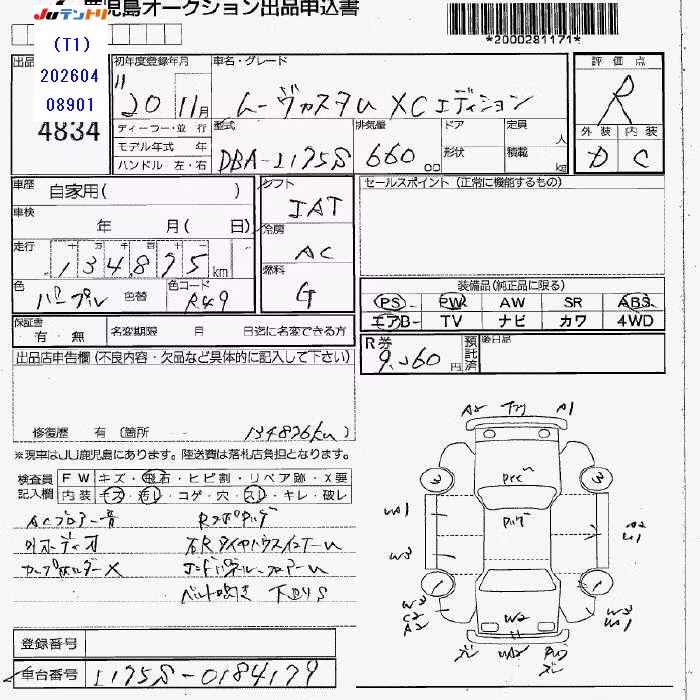 JUテントリ
鹿児島オークション出品申込書
*2000281171*
(T1)
202604
08901
4834
初年度登録年月
20 11月
車名・グレード
ムーヴカスタム XCエディション
評価点
R
外装 内装
D C
ディーラー・並 行
モデル年式 年
ハンドル 左・右
型式
DBA-L175S
排気量
660 cc
ドア
形状
定員 人
積載 kg
車歴 自家用( )
車検 年 月( 日)
走行 134,875 km
色 パープル 色替
色コード R49
シフト IAT
冷房 AC
燃料 G
セールスポイント (正常に機能するもの)
装備品(純正品に限る)
PS PW AW SR ABS
エアB TV ナビ カワ 4WD
保証書 有・無
名変期限 月 日迄に名変できる方
R券 9,560円
預託済
後日品
出品店申告欄 (不良内容・欠品など具体的に記入して下さい)
修復歴 有 (箇所 134876km)
※現車はJU鹿児島にあります。陸送費は落札店負担となります。
検査員記入欄
FW キズ・飛石・ヒビ割・リペア跡・X要
内装 キズ・汚レ・コゲ・穴・スレ・キレ・破レ
ACブロアー音
外オーディオ
カップホルダーX
下回りS
A2 A1
3 3
UA1
W3
A2
U1
W3
C2
A2
W2
W3
UA1
UA2
登録番号
車台番号 L175S-0184179